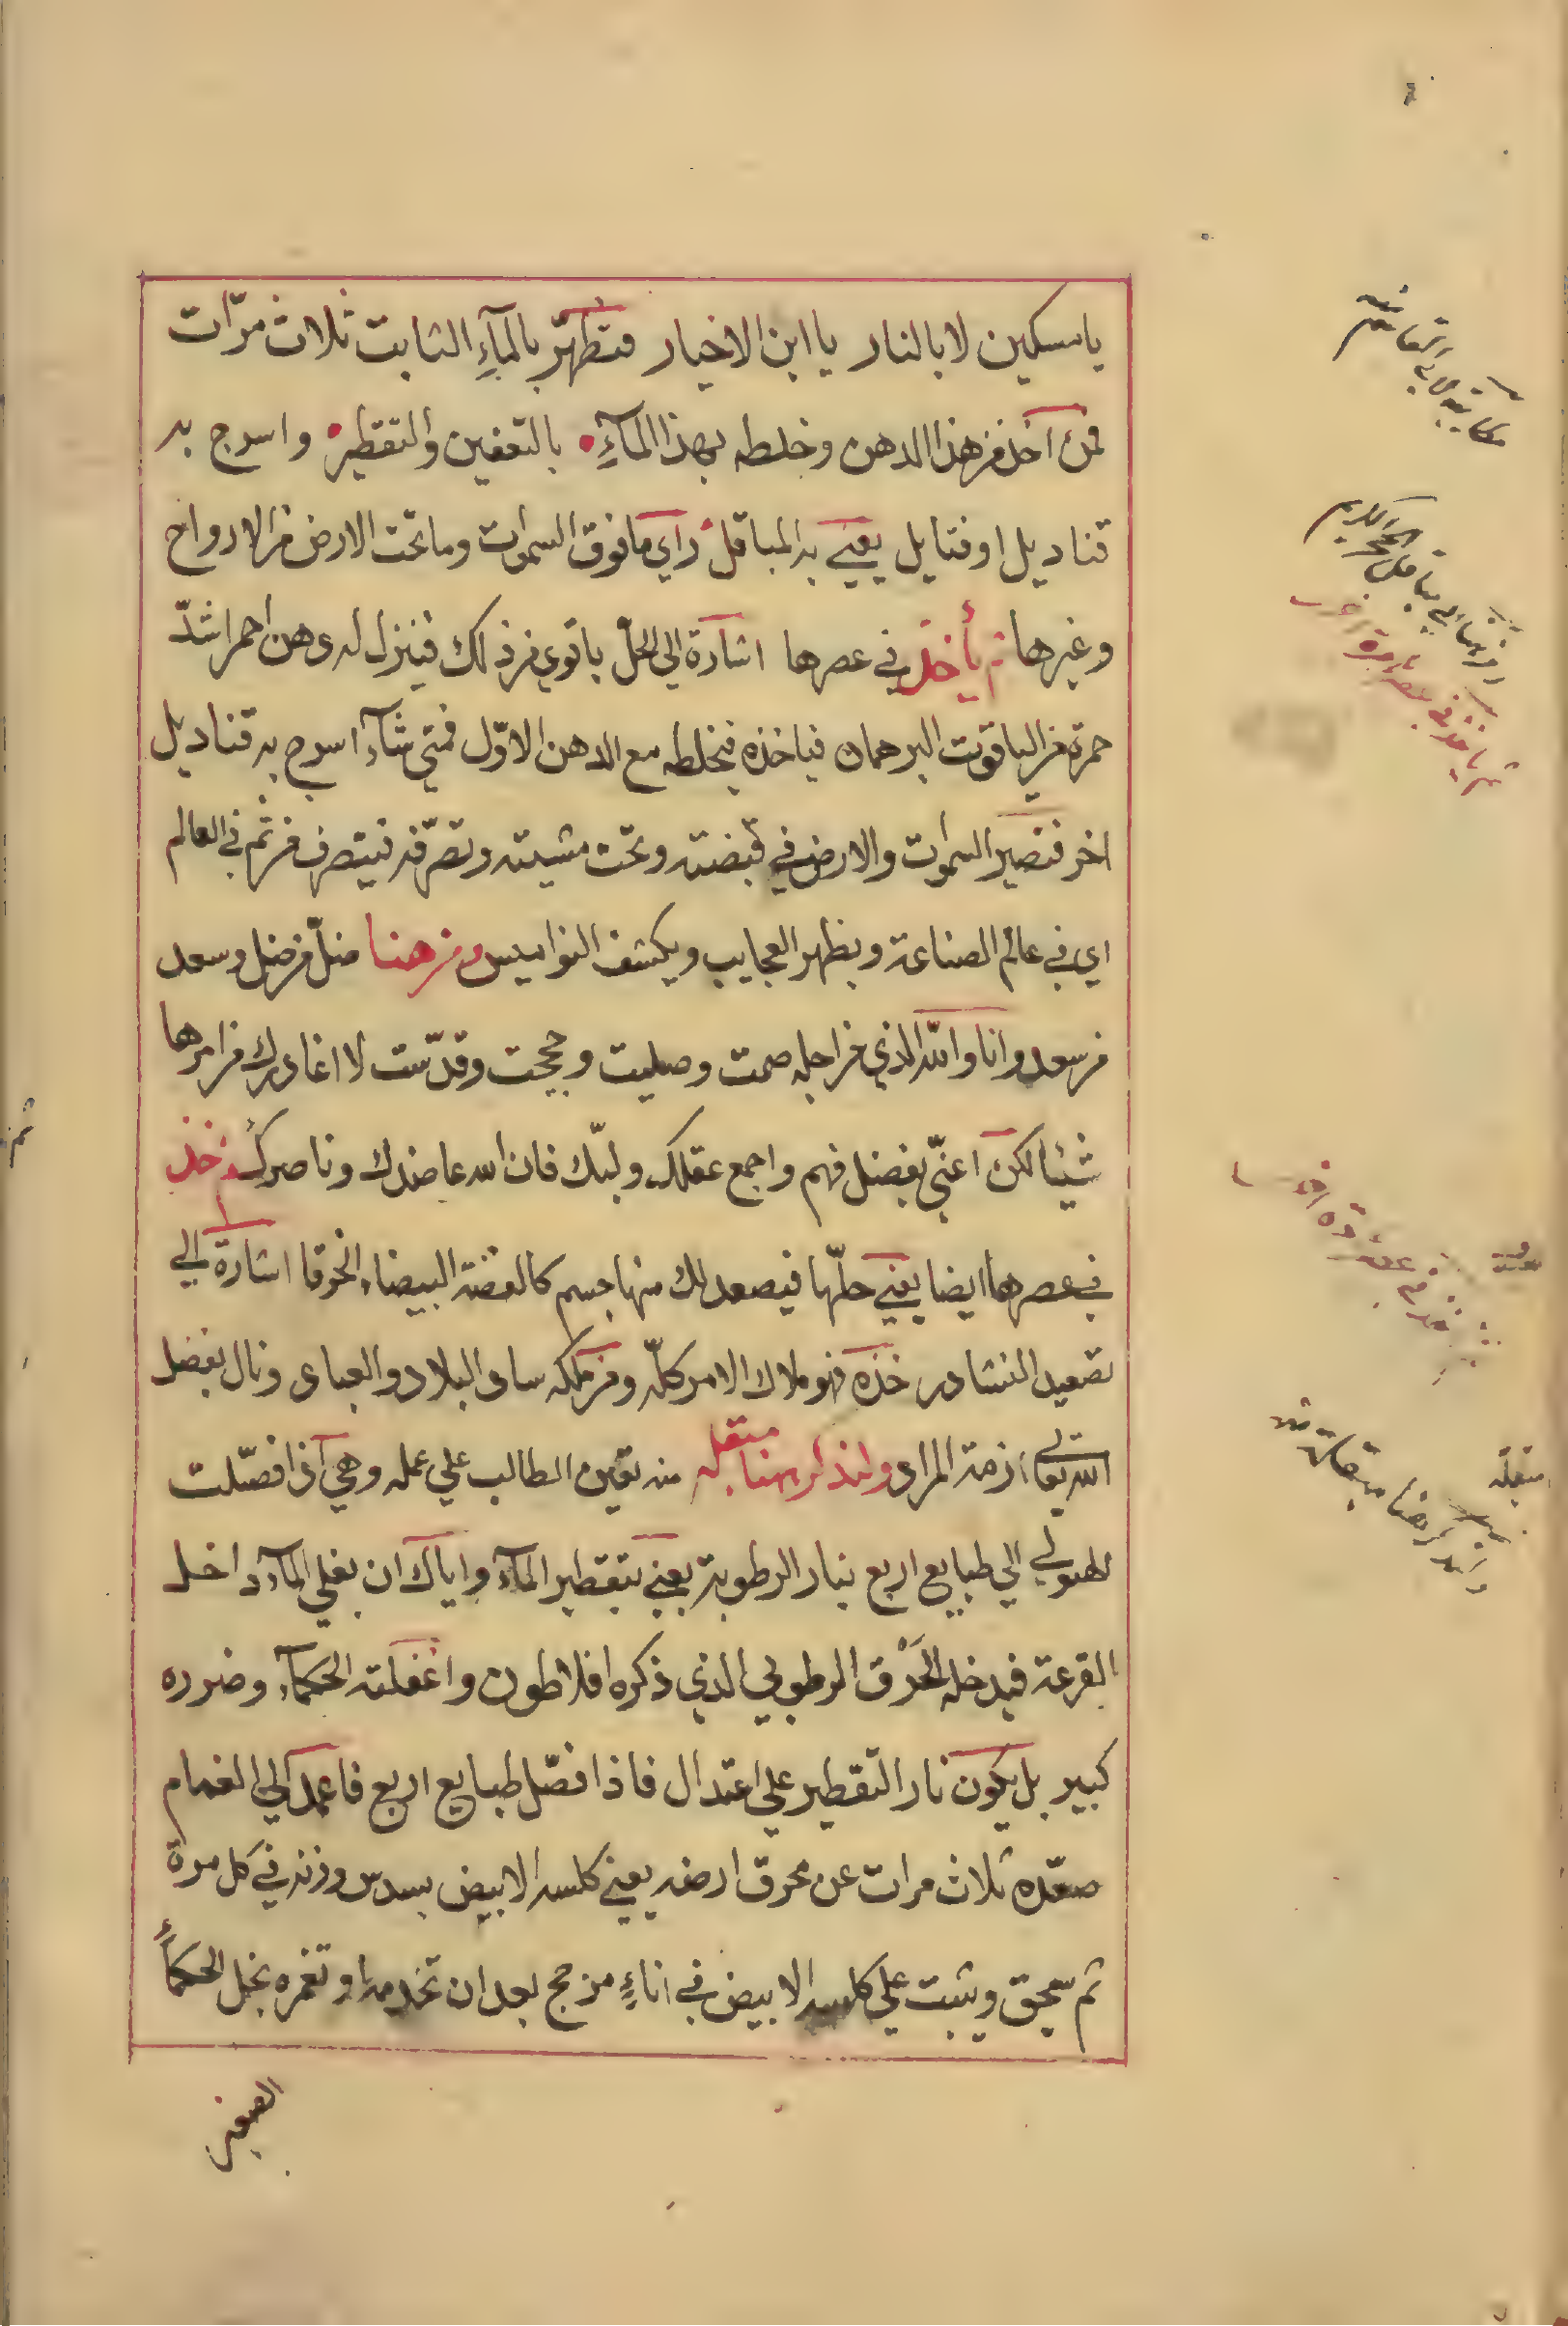 يا مسكين لا بالنار يا ابن الاخيار فتطهّر بالمآءِ الثابت ثلاث مرّات
فمن آخذ من هذا الدهن وخلطه بهذا المآءِ بالتعفين والتقطير واسرج به
قناديل او فتايل يعني به المباقل رأي ما فوق السموات وما تحت الارض من الارواح
وغيرها ثم يأخذ في عصرها اشارة الى الحلّ باقوي من ذلك فينزل له دهن احمر اشدّ
حمرة من الياقوت البرهمان فياخذه فيخلطه مع الدهن الاوّل فمتي شآء اسرج به قناديل
اخر فتصير السموات والارض في قبضته وتحت مشيته وتصرّفه فيتصرف من ثم في العالم
اي في عالم الصناعة ويظهر العجايب ويكشف النواميس ومن هنا ضلّ من ضل وسعد
من سعد وانا والله الذي من اجله صمت وصليت وحججت وقدّست لا اغادرك من امرها
شيئا لكن اعنّي بفضل فهم واجمع عقلك ولبّك فان الله عاضدك وناصرك خذ
في عصرها ايضا يعني حلّها فيصعد لك منها جسم كالفضة البيضاء الخوقا اشارة الي
تصعيد النشادر خذه فهو ملاك الامر كلّه ومن ملكه ساد البلاد والعباد ونال بفضل
الله تعالى ازمة المراد ولنذكر هنا مبتقله منه تعين الطالب علي عمله وهي آذا فصّلت
الهيولي الي طبايع اربع بنار الرطوبة يعني بتقطير المآء واياك ان يغلي المآء داخل
القرعة فيدخله الحَرْق الرطوبي الذي ذكره افلاطون واغفلته الحكمآء وضرره
كبير بل يكون نار التقطير علي اعتدال فاذا فصّل طبايع اربع فاعمد الي الغمام
صعّده ثلاث مرات عن محرق ارضه يعني كلسه الابيض بسدس وزنه في كل مرة
ثم سحق ويثبت علي كلسه الابيض في اناءٍ مزجج بعد ان تخدمه او تغمره بخل الحكمآء
مبتقلة